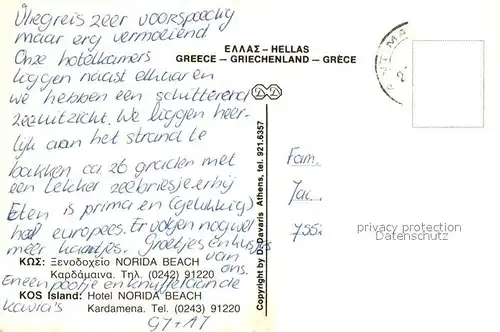 Vliegreis zeer voorspoedig
maar erg vermoeiend.
Onze hotelkamers
liggen naast elkaar en
we hebben een schitterend
zeeuitzicht. We liggen heer-
lijk aan het strand te
bakken ca 26 graden met
een lekker zeebriesje erbij
Eten is prima en (gelukkig)
heel europees. Er volgen nog wel
meer kaartjes. Groetjes en kusjes
van
ons.
En een pootje en knuffel aan de
kavia's
G7+A7
ΕΛΛΑΣ – HELLAS
GREECE – GRIECHENLAND – GRÈCE
ΚΩΣ: Ξενοδοχείο NORIDA BEACH
Καρδάμαινα. Τηλ. (0242) 91220
KOS Island: Hotel NORIDA BEACH
Kardamena. Tel. (0242) 91220
Copyright by D. Davaris Athens, tel. 921.6357
Fam.
Jac
755
privacy protection
Datenschutz